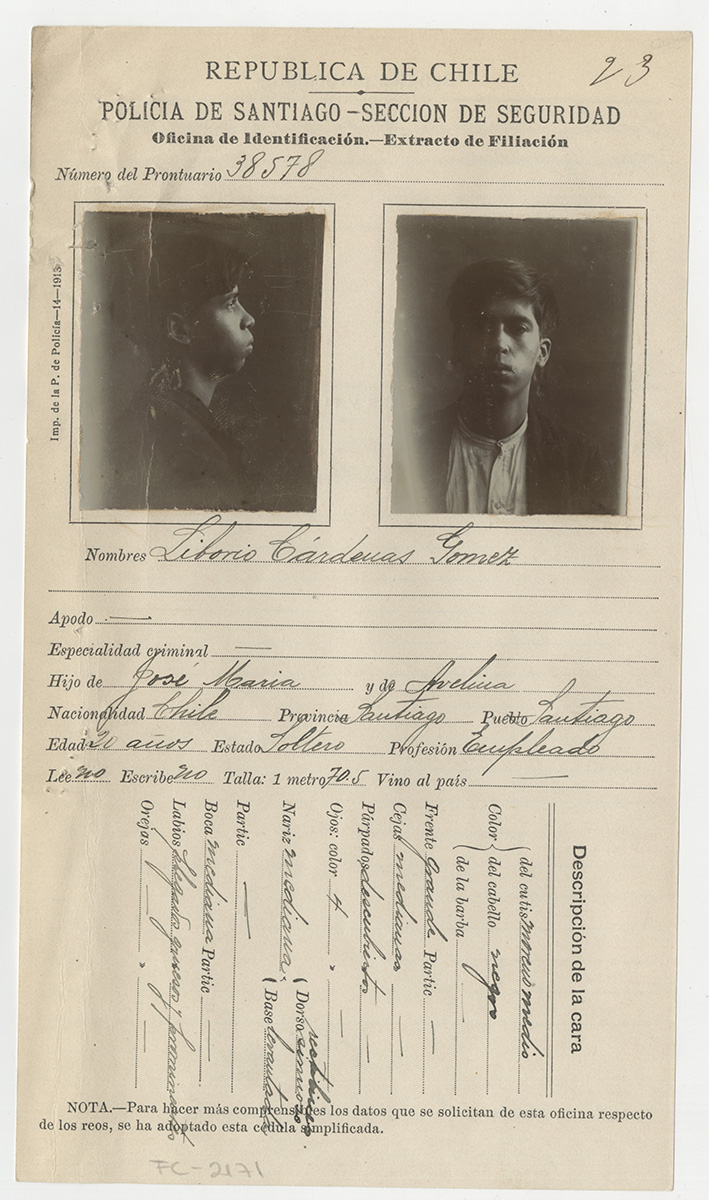 23
REPUBLICA DE CHILE
POLICIA DE SANTIAGO-SECCION DE SEGURIDAD
Oficina de Identificación.—Extracto de Filiación
Número del Prontuario 38578
Imp. de la P. de Policía—14—1913
Nombres Liborio Cárdenas Gomez
Apodo —
Especialidad criminal —
Hijo de José Maria y de Avelina
Nacionalidad Chile Provincia Santiago Pueblo Santiago
Edad 20 años Estado Soltero Profesión Empleado
Lee no Escribe no Talla: 1 metro 70.5 Vino al país —
Descripción de la cara
Color
del cutis moreno medio
del cabello negro
de la barba —
Frente Grande Partic —
Cejas medianas —
Párpados descubiertos —
Ojos: color 4 » —
Nariz mediana
Dorso
Base levantada
Partic —
Boca mediana Partic —
Labios gruesos y
Orejas — » —
NOTA.—Para hacer más comprensibles los datos que se solicitan de esta oficina respecto
de los reos, se ha adoptado esta cédula simplificada.
FC-2171